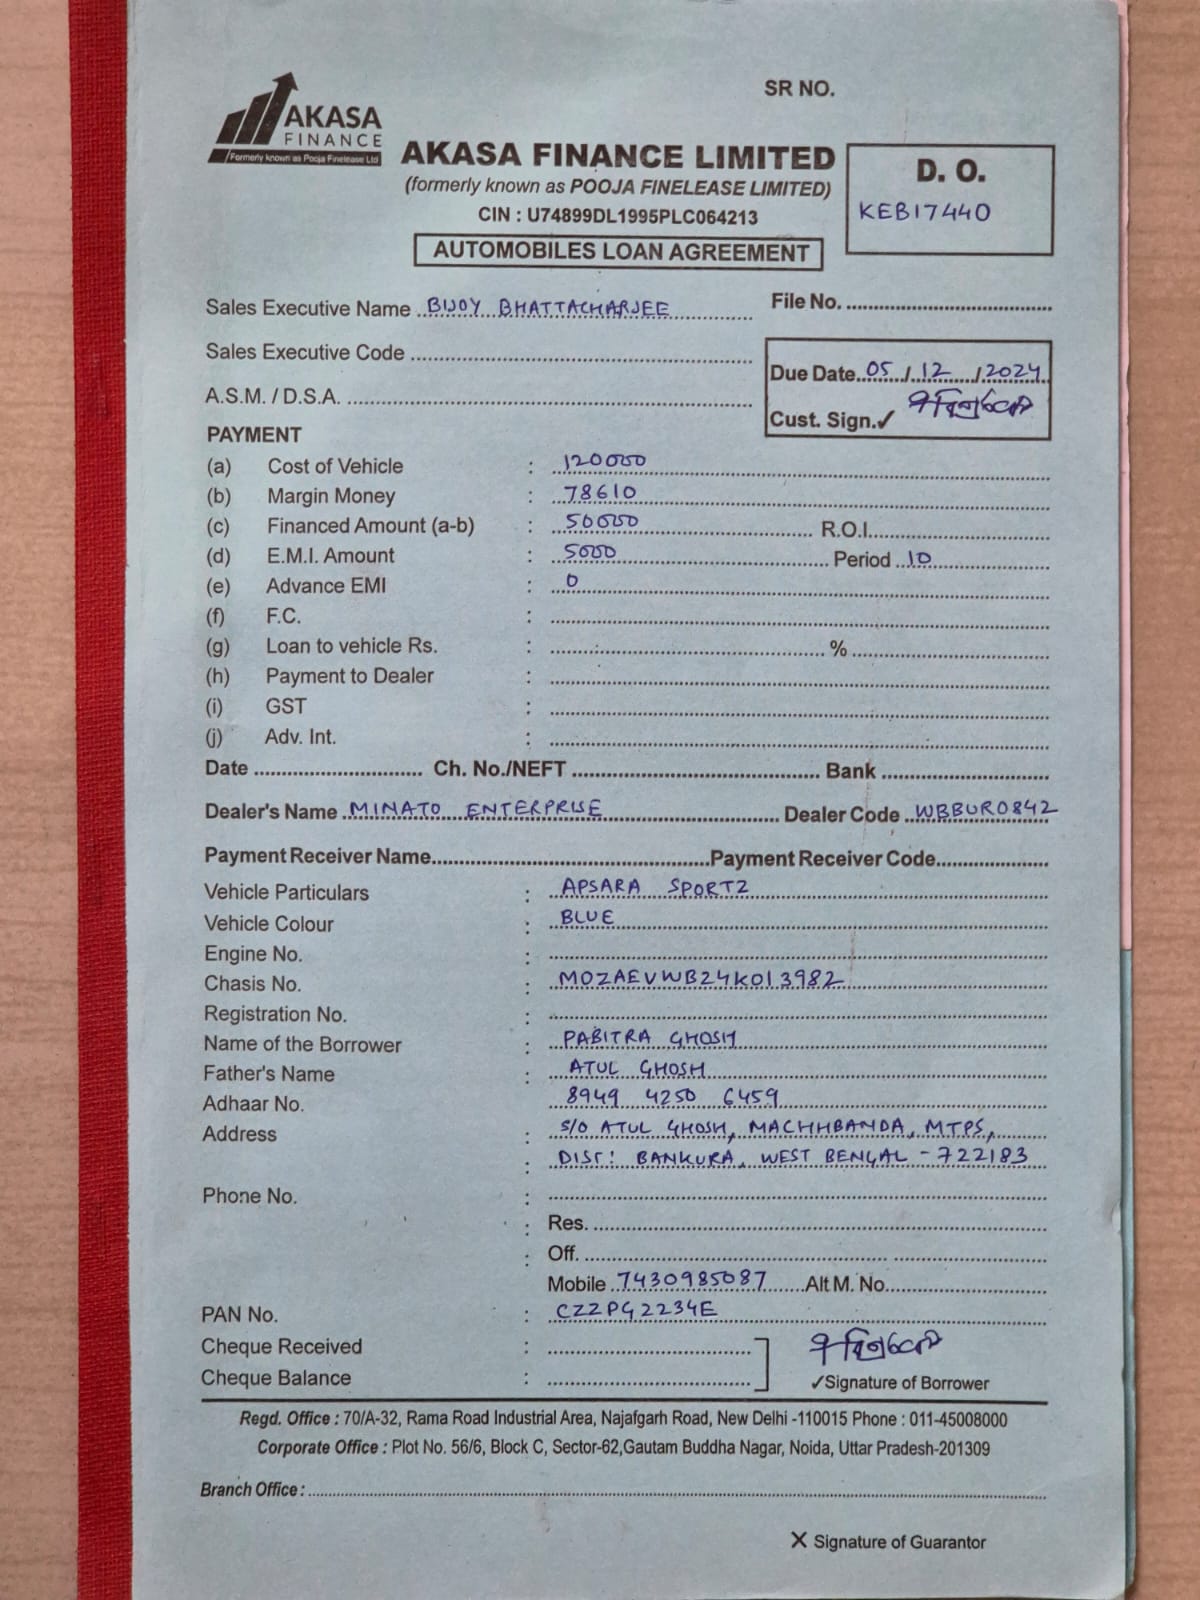 SR NO.
AKASA
FINANCE
Formerly known as Pooja Finelease Ltd
AKASA FINANCE LIMITED
(formerly known as POOJA FINELEASE LIMITED)
CIN : U74899DL1995PLC064213
AUTOMOBILES LOAN AGREEMENT
D. O.
KEB17440
Sales Executive Name BIJOY BHATTACHARJEE File No.
Sales Executive Code
Due Date 05/12/2024
A.S.M. / D.S.A.
Cust. Sign.✓
PAYMENT
(a) Cost of Vehicle : 120000
(b) Margin Money : 78610
(c) Financed Amount (a-b) : 50000 R.O.I.
(d) E.M.I. Amount : 5000 Period 10
(e) Advance EMI : 0
(f) F.C. :
(g) Loan to vehicle Rs. : %
(h) Payment to Dealer :
(i) GST :
(j) Adv. Int. :
Date Ch. No./NEFT Bank
Dealer's Name MINATO ENTERPRISE Dealer Code WBBUR0842
Payment Receiver Name Payment Receiver Code
Vehicle Particulars : APSARA SPORTZ
Vehicle Colour : BLUE
Engine No. :
Chasis No. : MOZAEVWB24K013982
Registration No. :
Name of the Borrower : PABITRA GHOSH
Father's Name : ATUL GHOSH
Adhaar No. 8949 4250 6459
Address : S/O ATUL GHOSH, MACHHBANDA, MTPS,
: DIST: BANKURA, WEST BENGAL - 722183
Phone No. :
: Res.
: Off.
Mobile 7430985087 Alt M. No.
PAN No. : CZZPG2234E
Cheque Received :
Cheque Balance :
✓Signature of Borrower
Regd. Office : 70/A-32, Rama Road Industrial Area, Najafgarh Road, New Delhi -110015 Phone : 011-45008000
Corporate Office : Plot No. 56/6, Block C, Sector-62,Gautam Buddha Nagar, Noida, Uttar Pradesh-201309
Branch Office :
X Signature of Guarantor